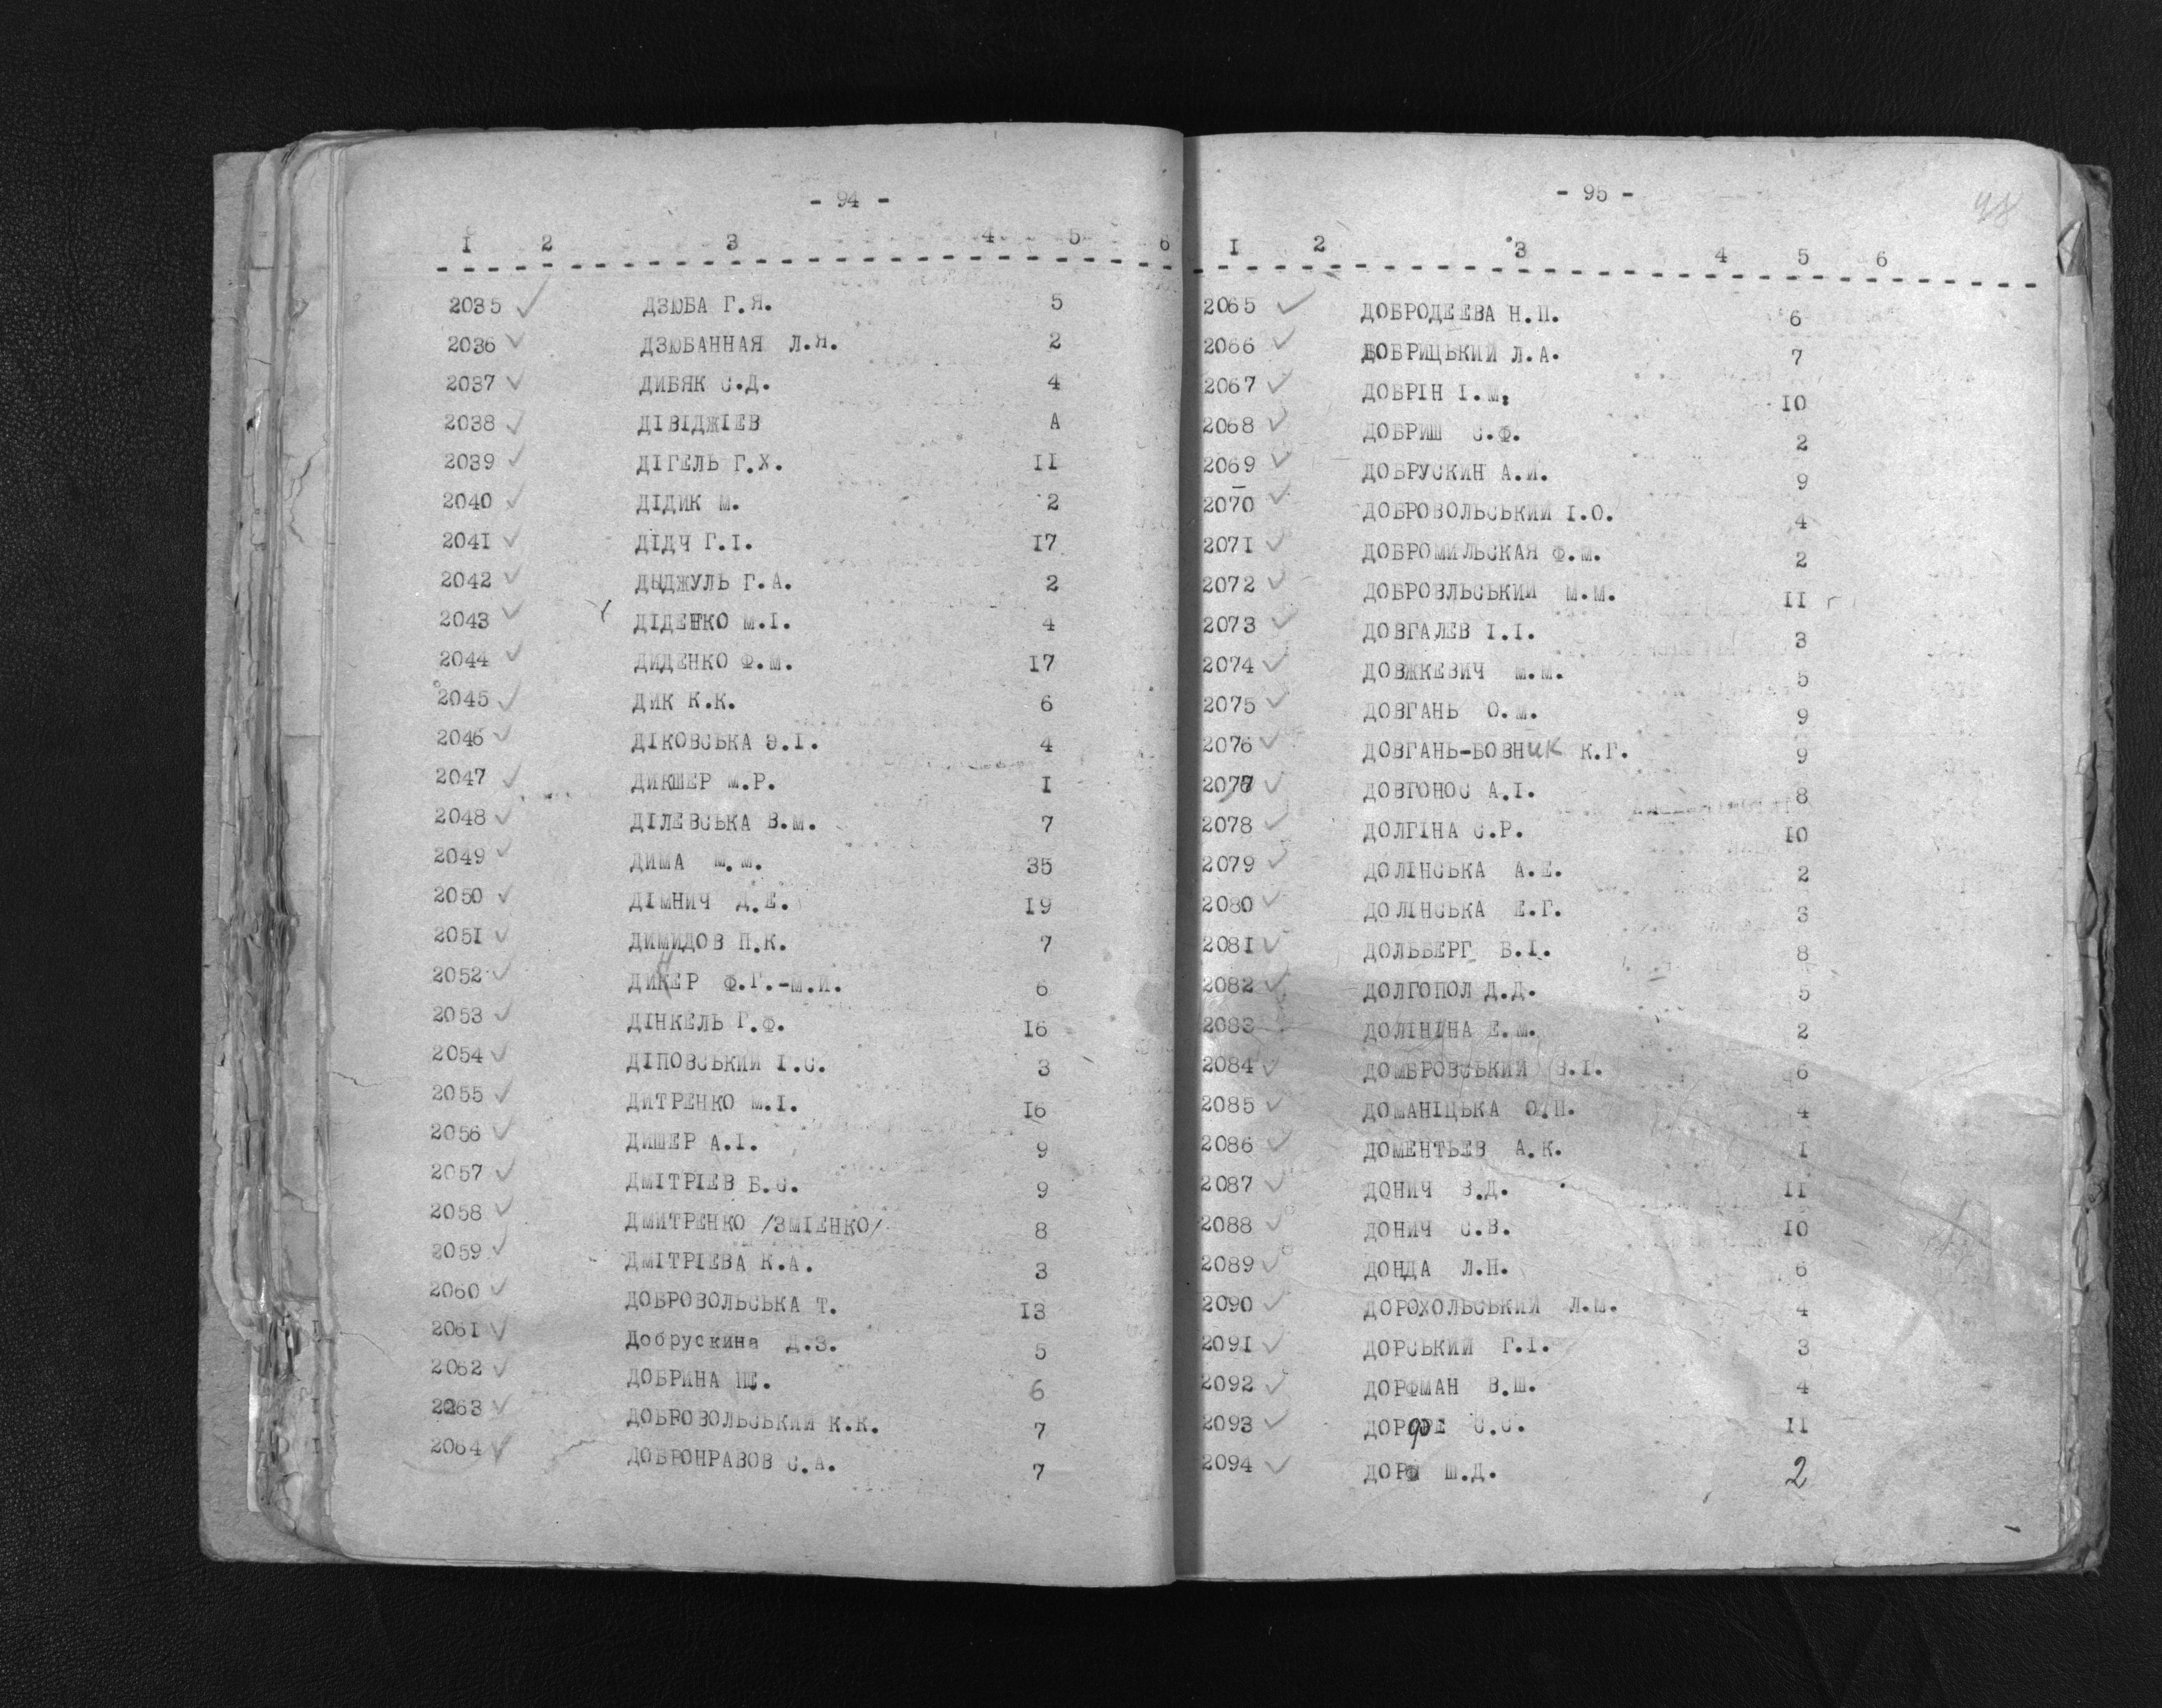 - 94 -
1 2 3 4 5 6
2035 ДЗЮБА Г.Я. 5
2036 ДЗЮБАННАЯ Л.Я. 2
2037 ДИБЯК С.Д. 4
2038 ДІВІДЖІЕВ А
2039 ДІГЕЛЬ Г.Х. II
2040 ДІДИК М. 2
2041 ДІДЧ Г.І. 17
2042 ДЫДЖУЛЬ Г.А. 2
2043 ДІДЕНКО М.І. 4
2044 ДИДЕНКО Ф.М. 17
2045 ДИК К.К. 6
2046 ДІКОВСЬКА Э.І. 4
2047 ДИКШЕР М.Р. I
2048 ДІЛЕВСЬКА В.М. 7
2049 ДИМА М.М. 35
2050 ДІМНИЧ Д.Е. 19
2051 ДИМИДОВ П.К. 7
2052 ДИКЕР Ф.Г.-М.И. 6
2053 ДІНКЕЛЬ Г.Ф. 16
2054 ДІПОВСЬКИЙ І.С. 3
2055 ДИТРЕНКО М.І. 16
2056 ДИШЕР А.І. 9
2057 ДМІТРІЕВ Б.С. 9
2058 ДМИТРЕНКО /ЗМІЕНКО/ 8
2059 ДМІТРІЕВА К.А. 3
2060 ДОБРОВОЛЬСЬКА Т. 13
2061 Добрускина Д.З. 5
2062 ДОБРИНА ПЕ. 6
2063 ДОБРОВОЛЬСЬКИЙ К.К. 7
2064 ДОБРОНРАВОВ С.А. 7
- 95 -
98
1 2 3 4 5 6
2065 ДОБРОДЕЕВА Н.П. 6
2066 ДОБРИЦЬКИЙ Л.А. 7
2067 ДОБРІН І.М. 10
2068 ДОБРИШ С.Ф. 2
2069 ДОБРУСКИН А.И. 9
2070 ДОБРОВОЛЬСЬКИЙ І.О. 4
2071 ДОБРОМИЛЬСКАЯ Ф.М. 2
2072 ДОБРОВЛЬСЬКИЙ М.М. II
2073 ДОВГАЛЕВ І.І. 3
2074 ДОВЖКЕВИЧ М.М. 5
2075 ДОВГАНЬ О.М. 9
2076 ДОВГАНЬ-БОВНИК К.Г. 9
2077 ДОВГОНОС А.І. 8
2078 ДОЛГІНА С.Р. 10
2079 ДОЛІНСЬКА А.Е. 2
2080 ДОЛІНСЬКА Е.Г. 3
2081 ДОЛЬБЕРГ Б.І. 8
2082 ДОЛГОПОЛ Д.Д. 5
2083 ДОЛІНІНА Е.М. 2
2084 ДОМБРОВСЬКИЙ В.І. 6
2085 ДОМАНІЦЬКА О.П. 4
2086 ДОМЕНТЬЕВ А.К. I
2087 ДОНИЧ В.Д. II
2088 ДОНИЧ С.В. 10
2089 ДОНДА Л.Н. 6
2090 ДОРОХОЛЬСЬКИЙ Л.М. 4
2091 ДОРСЬКИЙ Г.І. 3
2092 ДОРФМАН В.Ш. 4
2093 ДОРФРЕ С.С. II
2094 ДОРФ Ш.Д. 2